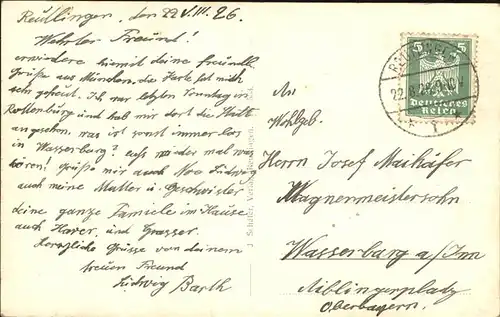 Reutlingen, den 22.VIII.26.
Wehrter Freund!
erwiedere hiemit deine freundl.
Grüße aus München. die Karte hat mich
sehr gefreut. Ich war letzten Sonntag in
Rottenburg und hab mir dort die Stadt
angesehn. was ist sonst immer los
in Wasserburg? laß wieder mal was
hören! Grüße mir auch Ludwig
auch meine Mutter u. Geschwister
deine ganze Familie im Hause
auch Harer, und Grasser.
Herzliche Grüsse von deinem
treuen Freund
Ludwig Barth
An
Wohlgeb.
Herrn Josef Maihäfer
Wagnermeistersohn
Wasserburg a/Inn
Aiblingerplatz
Oberbayern
5 5
Deutsches
Reich